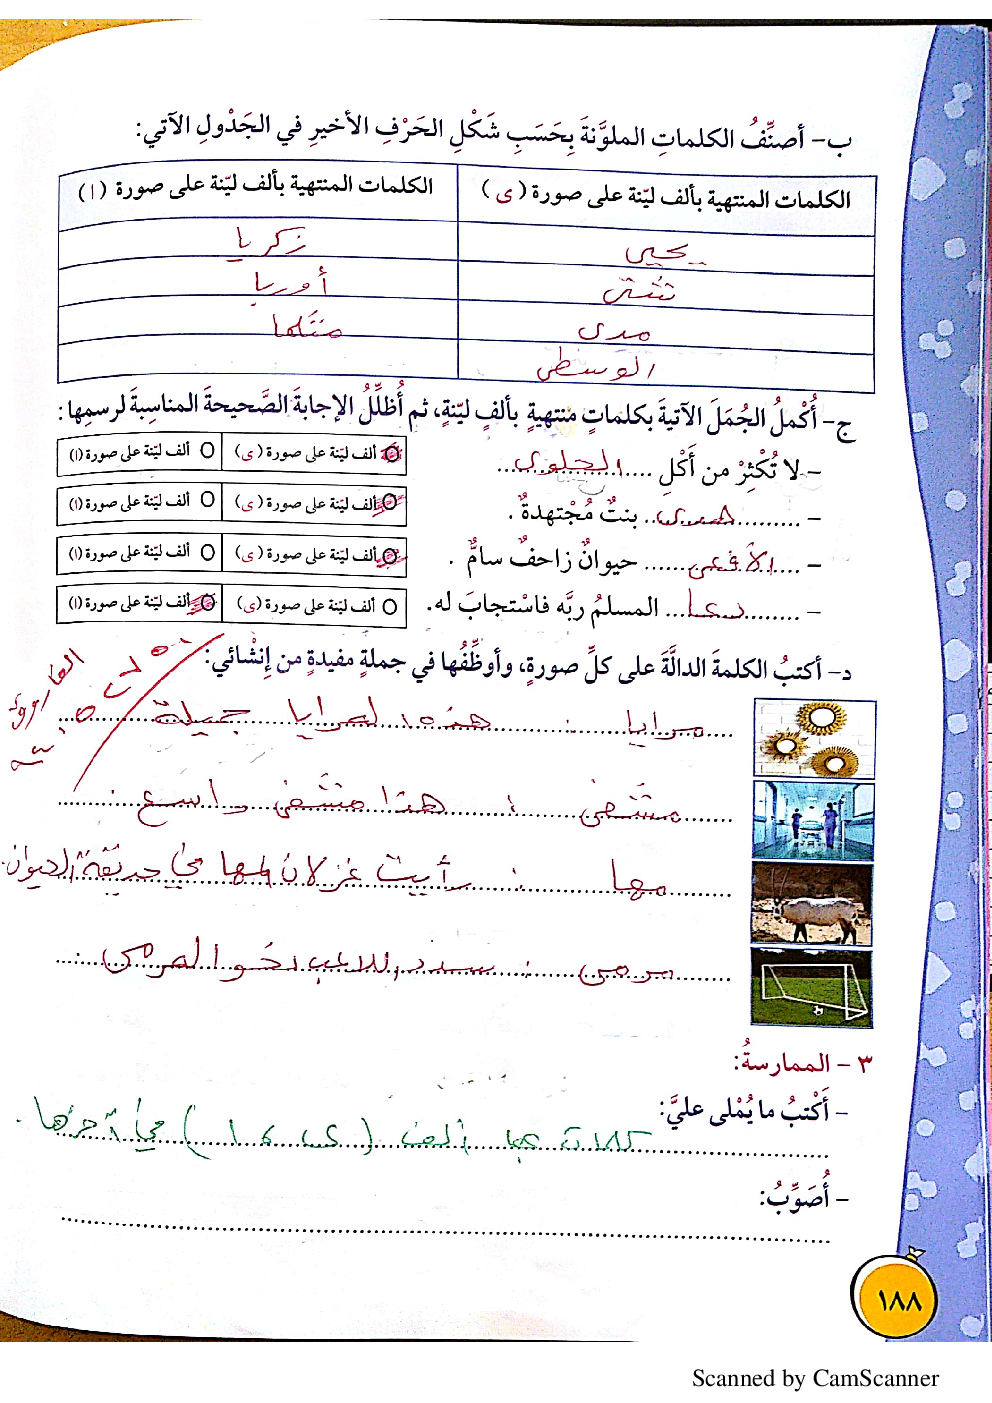 ب- أصنِّفُ الكلماتِ الملوَّنةَ بِحَسَبِ شَكْلِ الحَرْفِ الأخيرِ في الجَدْولِ الآتي:
الكلمات المنتهية بألف ليّنة على صورة (ى) الكلمات المنتهية بألف ليّنة على صورة (ا)
يحيى زكريا
تثنى أوربا
مدى مثلما
الوسطى
ج- أُكْملُ الجُمَلَ الآتيةَ بكلماتٍ منتهيةٍ بألفٍ ليّنةٍ، ثم أُظلِّلُ الإجابةَ الصَّحيحةَ المناسِبةَ لرسمِها:
- لا تُكْثِرْ من أَكْلِ ... الحلوى ...... ألف ليّنة على صورة (ى) ألف ليّنة على صورة (ا)
- ........ هدى .. بنتٌ مُجْتهدةٌ . ألف ليّنة على صورة (ى) ألف ليّنة على صورة (ا)
- .... الأفعى ...... حيوانٌ زاحفٌ سامٌّ . ألف ليّنة على صورة (ى) ألف ليّنة على صورة (ا)
- ........ دعا ... المسلمُ ربَّه فاسْتجابَ له. ألف ليّنة على صورة (ى) ألف ليّنة على صورة (ا)
د- أكتبُ الكلمةَ الدالَّةَ على كلِّ صورةٍ، وأوظِّفُها في جملةٍ مفيدةٍ من إِنْشائي:
مرايا : هذه المرايا جميلة
مشفى : هذا مشفى واسع .
مها : رأيت غزلان المها في حديقة الحيوان.
مرمى : سدد اللاعب نحو المرمى .
٣ - الممارسةُ:
- أَكْتبُ ما يُمْلى عليَّ:
كلمات بها ألف (ى ، ا) في آخرها .
- أُصَوِّبُ:
١٨٨
Scanned by CamScanner